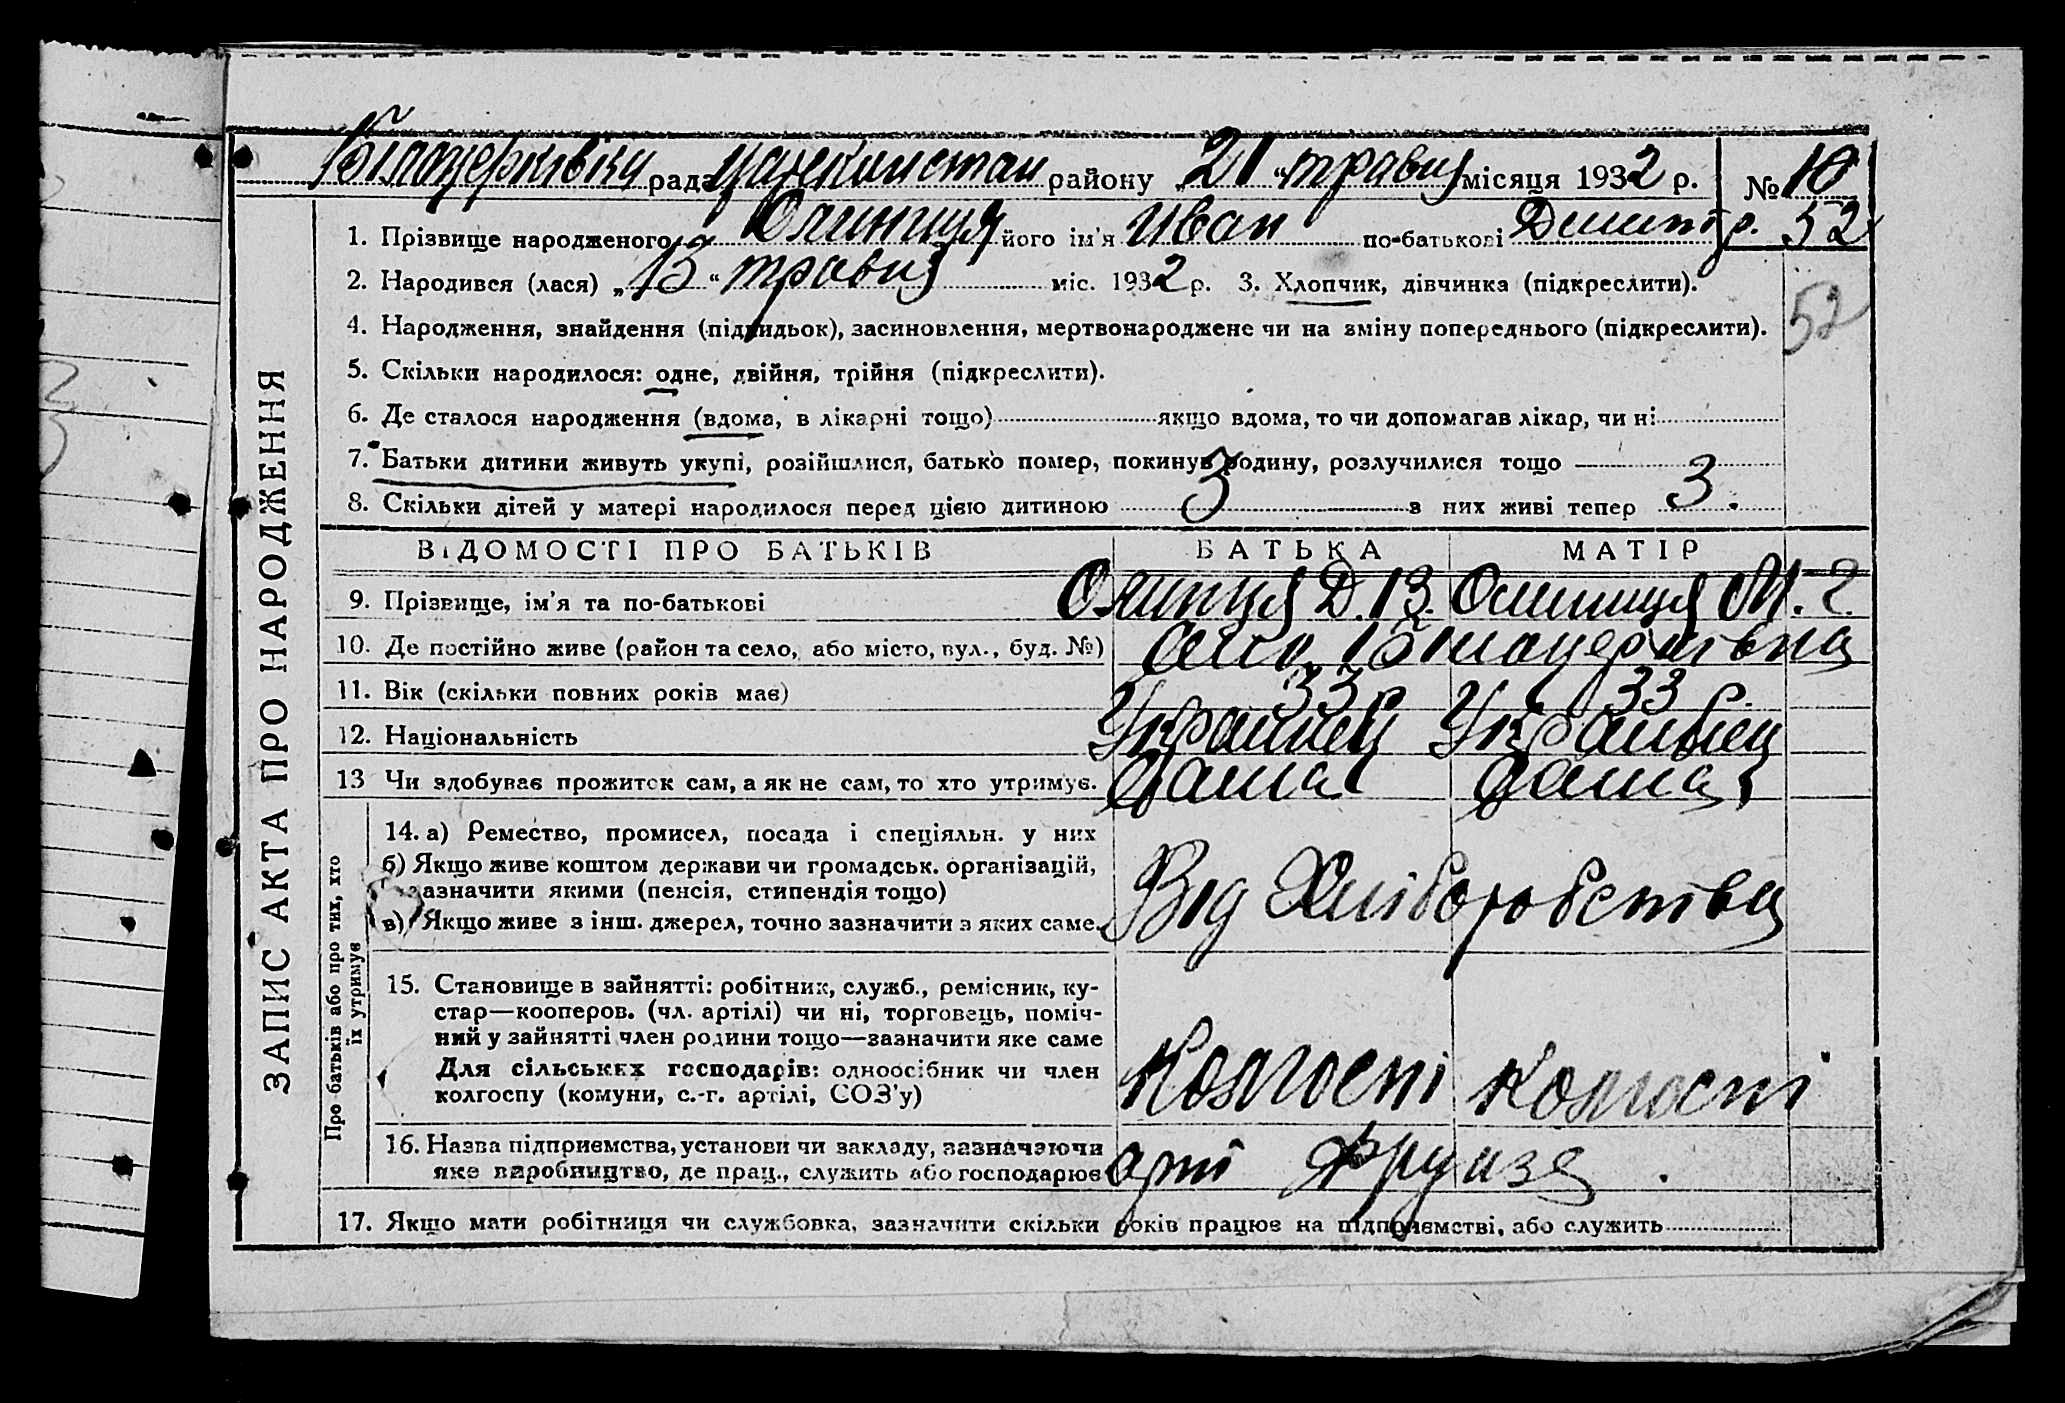 Білоцерківка рада районy „21“ травня місяця 1932 р. № 10
1. Прізвище народженого Олиниця його ім'я Иван по-батькові Дмитр. 52
2. Народився (лася) „13“ травня міс. 1932 р. 3. Хлопчик, дівчинка (підкреслити).
4. Народження, знайдення (підкидьок), засиновлення, мертвонароджене чи на зміну попереднього (підкреслити). 52
5. Скільки народилося: одне, двійня, трійня (підкреслити).
6. Де сталося народження (вдома, в лікарні тощо) якщо вдома, то чи допомагав лікар, чи ні:
7. Батьки дитини живуть укупі, розійшлися, батько помер, покинув родину, розлучилися тощо
8. Скільки дітей у матері народилося перед цією дитиною 3 з них живі тепер 3.
ЗАПИС АКТА ПРО НАРОДЖЕННЯ
ВІДОМОСТІ ПРО БАТЬКІВ БАТЬКА МАТІР
9. Прізвище, ім'я та по-батькові Олиниця Д. В. Олиниця М. Г.
10. Де постійно живе (район та село, або місто, вул., буд. №) село Білоцерківка
11. Вік (скільки повних років має) 33 33
12. Національність Украинец Украинец
13 Чи здобуває прожиток сам, а як не сам, то хто утримує.
Про батьків або про тих, хто
їх утримує
14. а) Ремество, промисел, посада і спеціяльн. у них
б) Якщо живе коштом держави чи громадськ. організацій,
зазначити якими (пенсія, стипендія тощо)
в) Якщо живе з інш. джерел, точно зазначити з яких саме. Від Хліборобства
15. Становище в зайнятті: робітник, служб., ремісник, ку-
стар—кооперов. (чл. артілі) чи ні, торговець, поміч-
ний у зайнятті член родини тощо—зазначити яке саме
Для сільських господарів: одноосібник чи член
колгоспу (комуни, с.-г. артілі, СОЗ'у) Колгоспі Колгоспі
16. Назва підприємства, установи чи закладу, зазначаючи
яке виробництво, де прац., служить або господарює арт Фрунзе
17. Якщо мати робітниця чи службовка, зазначити скільки років працює на підприємстві, або служить